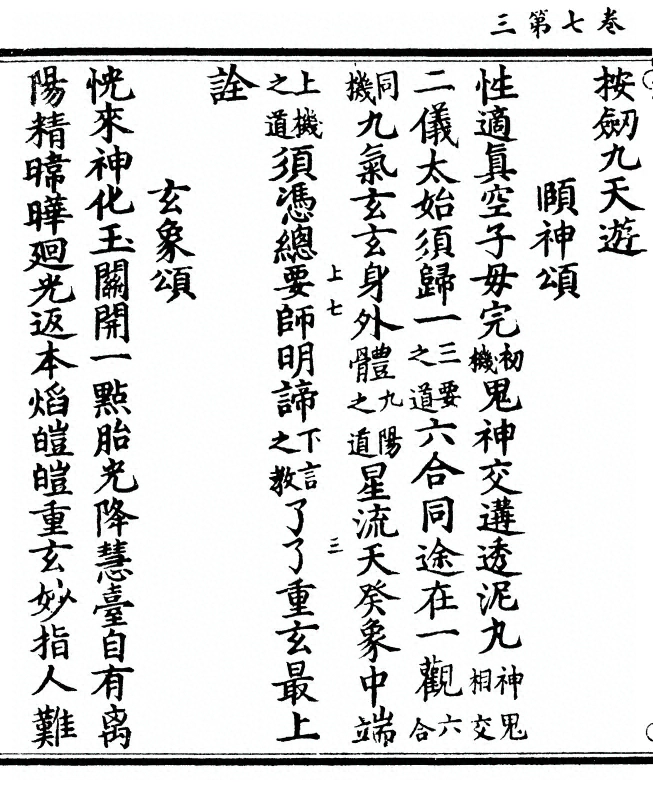 三第七卷
按劒九天遊
頤神頌
性適真空子母完初機鬼神交遘透泥丸神鬼相交
二儀太始須歸一三要之道六合同途在一觀六合
同機九氣玄玄身外體九陽之道星流天癸象中端
上機之道須憑總要師明諦下言之教了了重玄最上
上七
三
詮
玄象頌
恍來神化玉關開一點胎光降慧臺自有离
陽精暐曄廻光返本焰皚皚重玄妙指人難